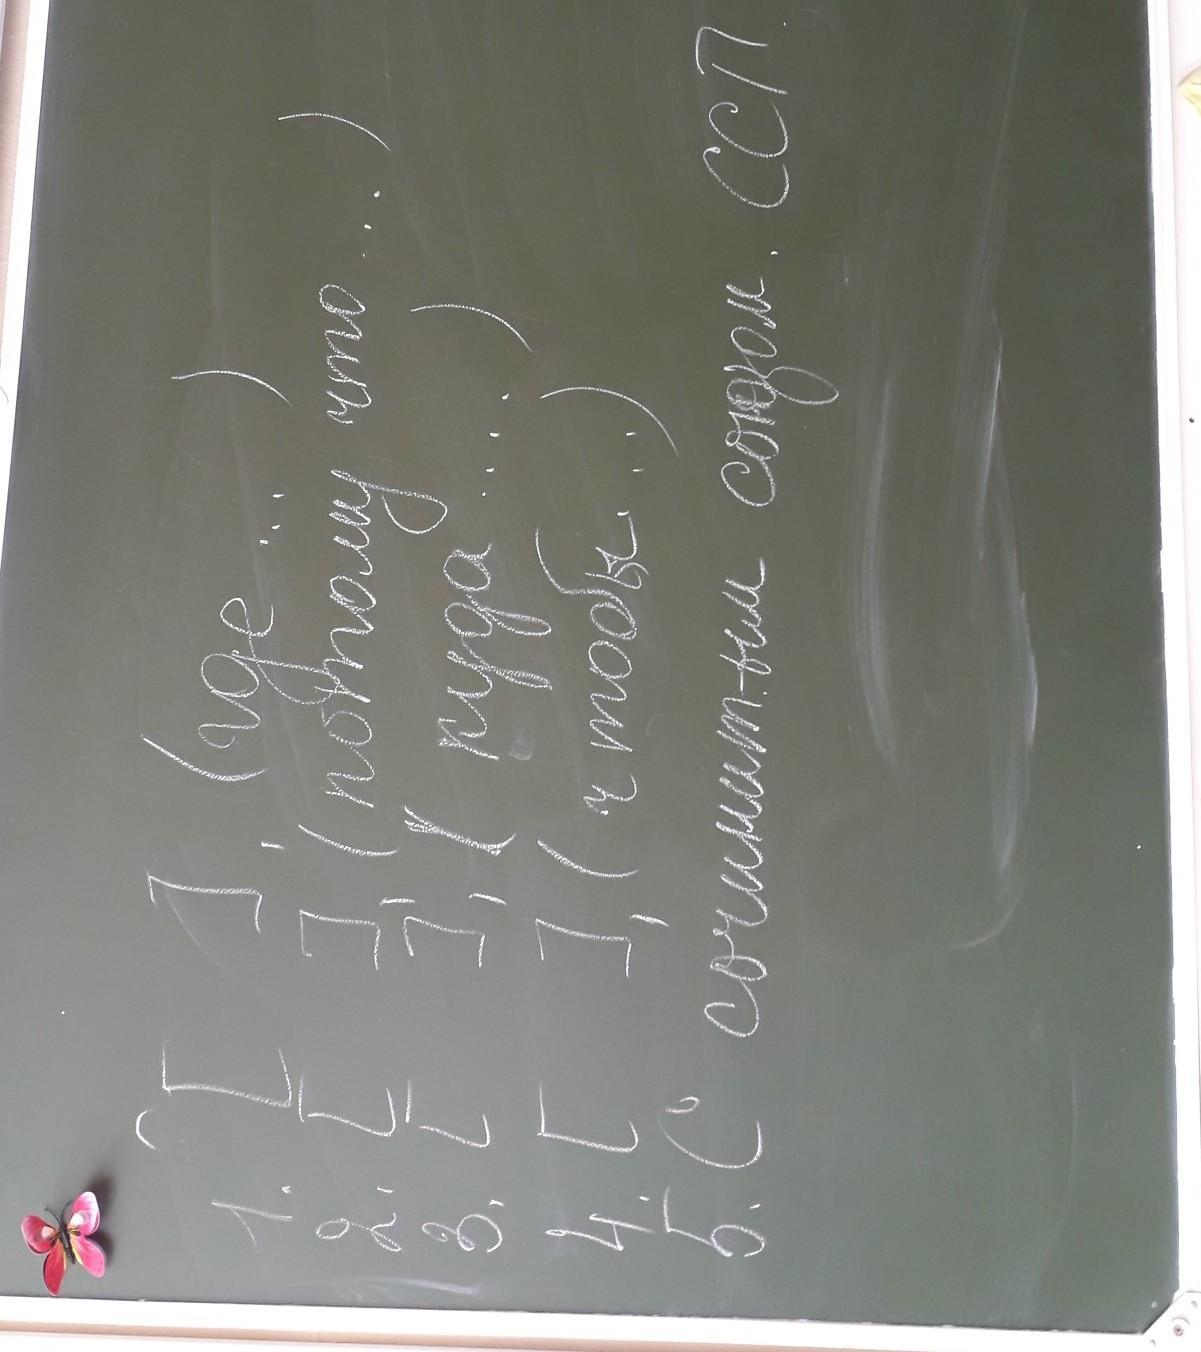 1. [ ], (где ... )
2. [ ], (потому что ... )
3. [ ], ( куда .... )
4. [ ], ( чтобы ... )
5. С сочинит-ным союзом. ССП.